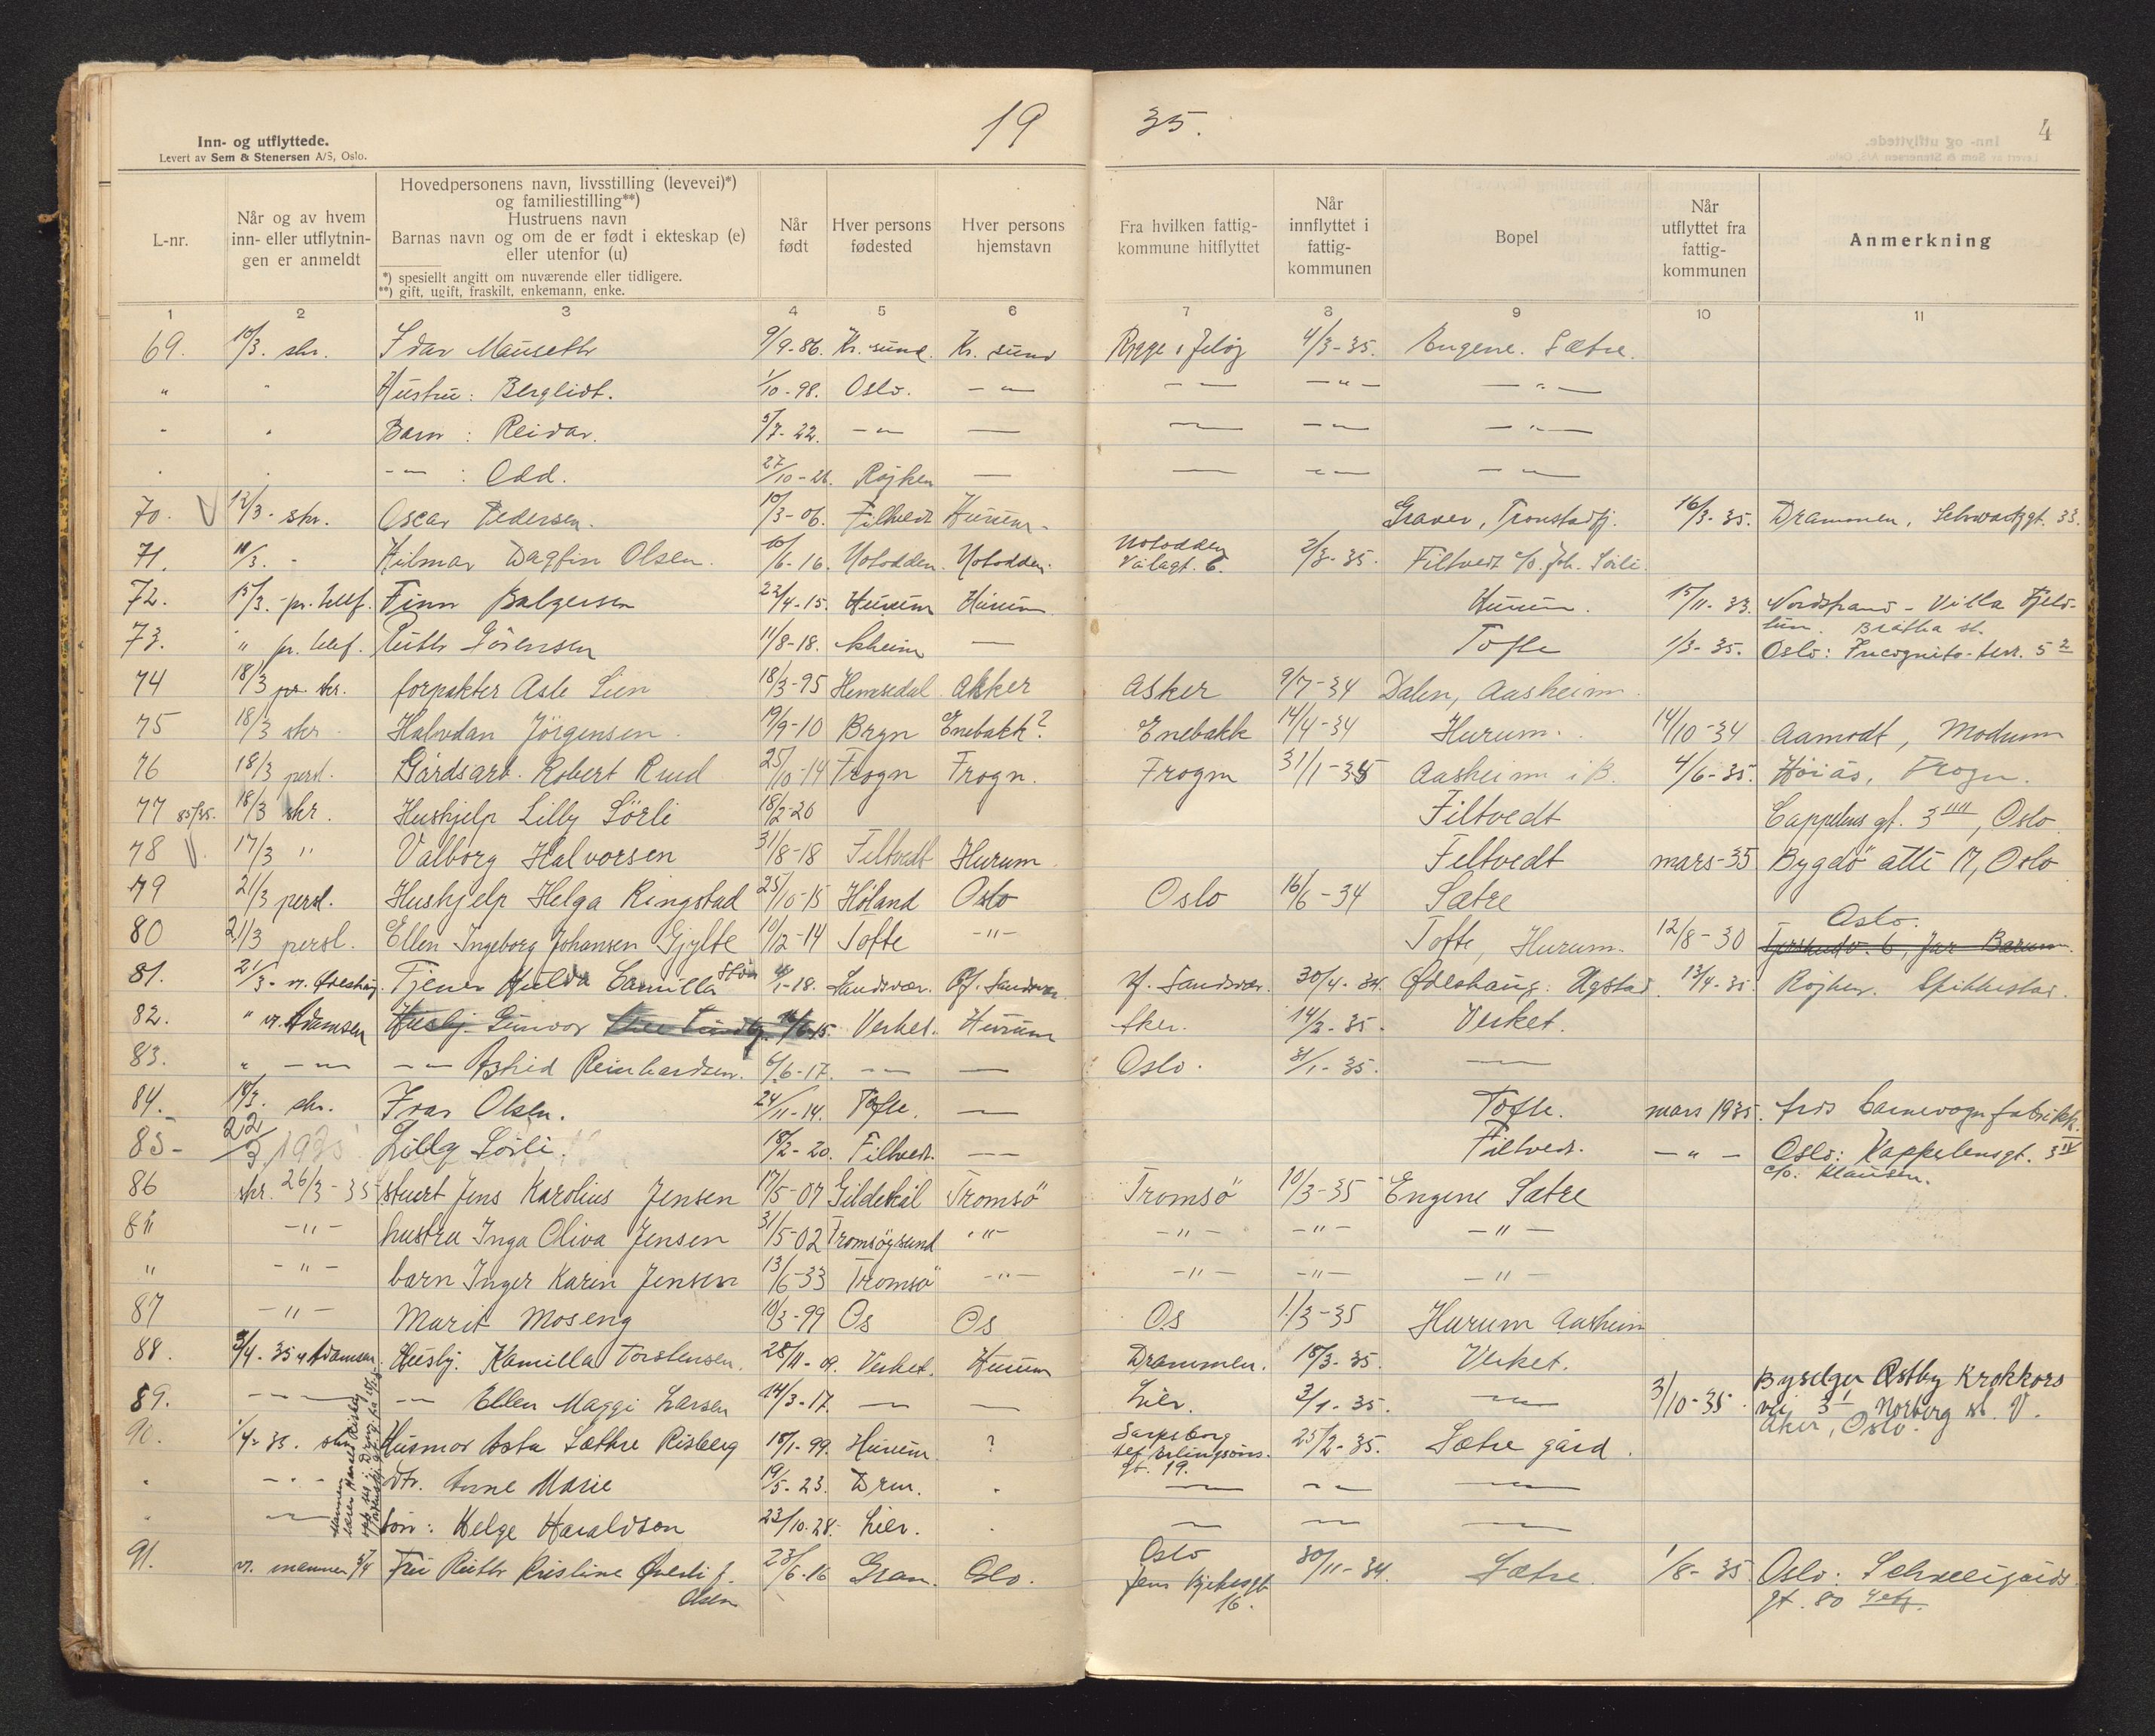 19 35.
4
Inn- og utflyttede.
Levert av Sem & Stenersen A/S, Oslo.
L-nr.
Når og av hvem inn- eller utflytnin- gen er anmeldt
Hovedpersonens navn, livsstilling (levevei)*)
og familiestilling**)
Hustruens navn
Barnas navn og om de er født i ekteskap (e)
eller utenfor (u)
*) spesiellt angitt om nuværende eller tidligere.
**) gift, ugift, fraskilt, enkemann, enke.
Når født
Hver persons fødested
Hver persons hjemstavn
Fra hvilken fattig- kommune hitflyttet
Når innflyttet i fattig- kommunen
Bopel
Når utflyttet fra fattig- kommunen
Anmerkning
1 2 3 4 5 6 7 8 9 10 11
69. 10/3. skr. Idar Mauseth 9/9-86. Kr. sund. Kr. sund Rygge i Jeløy 4/3-35. Engene. Sætre.
" " Hustru: Bergliot. 1/10-98. Oslo. — " — — — — " — — " —
" " Barn: Reidar. 5/7-22. — " — — — — " — — " —
" " — " — : Odd. 27/10-26. Røjken — — — " — — " —
70. V 12/3- skr. Oscar Pedersen. 10/3-06. Filtvedt Hurum- Graver, Tronstadfj. 16/3-35. Drammen, Schwartzgt. 33.
71. 11/3. - Hilmar Dagfin Olsen. 10/6-16. Notodden. Notodden. Notodden 2/3-35. Filtvedt c/o. Joh. Sørli.
72. 15/3. -pr. telef. Finn Balgersen 22/4-15. Hurum Hurum Hurum. 15/11-33. Nordstrand - Villa Fjeld-
73. " pr. telef. Ruth Sørensen 11/8-18. Åsheim — Tofte 1/3-35. Oslo: Incognito-terr. 5 2
74 18/3 pr. skr. forpakter Asle Lien 18/3-95 Hemsedal Asker Asker 9/7-34 Dalen, Aasheim.
75 18/3 skr. Halvdan Jörgensen. 19/9-10 Bryn Enebakk? Enebakk 14/4-34 Hurum. 14/10-34 Aamodt, Modum
76 18/3 persl. Gårdsarb. Robert Ruud 25/10-14 Frogn Frogn. Frogn 31/1-35 Aasheim i B. 4/6-35. Høiås, Frogn.
77 85/35. 18/3 skr. Hushjelp Lilly Sörli 18/2-20 Filtvedt Cappelens gt. 3 IIII, Oslo.
78 V. 17/3 " Valborg Halvorsen 31/8-18 Filtvedt Hurum. Filtvedt mars-35 Bygdö alle 17, Oslo
79 21/3 persl. Hushjelp Helga Ringstad 25/10-15 Höland Oslo Oslo 16/6-34 Sætre
80 21/3 persl. Ellen Ingeborg Johansen Gjylte 10/12-14 Tofte — " — Tofte, Hurum. 12/8-30 Oslo.
81. 21/3- v. Ødeshaug. Tjener Hulda Camilla Støa 4/1-18. Sandsvær. Øf. Sandsvær. Yf. Sandsvær. 30/4-34. Ødeshaug: Ugstad. 13/4-35. Røjken. Spikkestad.
82. " v. Adamsen Husbj. Gunvor 15. Verket. Hurum Aker. 14/2-35. Verket.
83. " — " — — " — Astrid Reinhardsen. 6/6-17. — " — — Oslo. 31/1-35. — " —
84. 19/3. skr. Ivar Olsen. 24/11-14. Tofte. — Tofte. mars 1935. hos barnevognfabrikk.
85- 22/3 1935 Lilly Sörli. 18/2-20. Filtvedt. — — Filtvedt. — " — Oslo: Kappelensgt. 3 IV
c/o. Klausen.
86 skr. 26/3-35 stuert Jens Karolius Jensen 17/5-07 Gildeskål Tromsö Tromsö 10/3-35 Engene Sætre
8" — " — hustru Inga Oliva Jensen 31/5-02 Tromsöysund " " — — " — — " — — " —
" — " — barn Inger Karin Jensen 13/6-33 Tromsö — " — — " — — " — — " —
87 — " — Marit Moseng 10/3-99 Os Os Os 1/3-35 Hurum Aasheim
88. 3/4-35 v. Adamsen. Husbj. Kamilla Torstensen. 28/11-09. Verket. Hurum Drammen. 18/3-35. Verket.
89. — " — — " — Ellen Maggi Larsen 14/3-17. — — Lier. 3/1-35. — " — 3/10-35. Byselger Østby Krokkors
vei 3 I, Norberg st. V.
Aker, Oslo.
90. 1/4-35. Husmor Asta Sæthre Risberg 18/1-99. Hurum ? Sarpsborg 25/2-35. Sætre gård.
gt. 19.
" — " — dtr. Anne Marie 19/5-23. Drm. " — — " — —
" — " — søn: Helge Haraldson 23/10-28. Lier. " — — " — —
91. v. mannen 3/4 Fru Ruth Kristine Øverli f. Olsen 23/6-16 Gran. Oslo. Oslo 30/11-34. Sætre. 1/8-35 Oslo: Schweigaards
Jens Bjelkesgt. 16. gt. 80 4 etg.